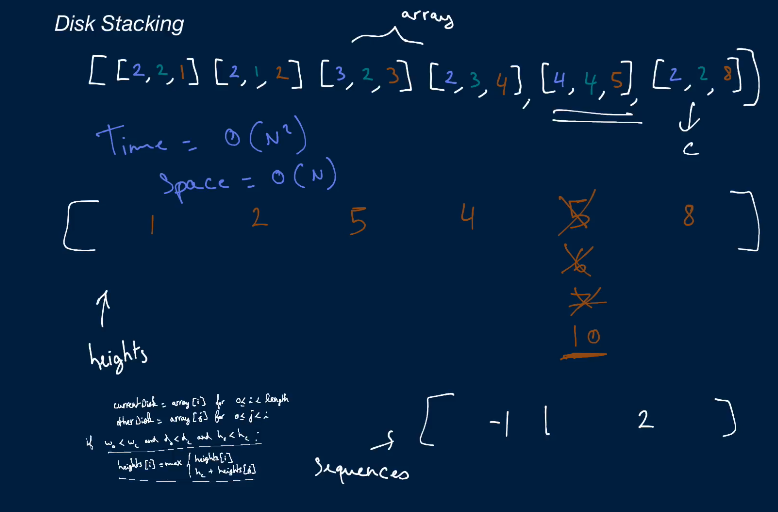 Disk Stacking
array
[[2,2,1] [2,1,2] [3,2,3] [2,3,4], [4,4,5], [2,2,8]]
Time = O(N²)
c
Space = O(N)
[ 1 2 5 4 5 8 ]
6
7
10
heights
currentDisk = array[i] for 0≤i<length
otherDisk = array[j] for 0≤j<i
if w₀<w꜀ and d₀<d꜀ and h₀<h꜀ :
heights[i] = max { heights[i]
h꜀ + heights[j]
[ -1 1 2 ]
sequences